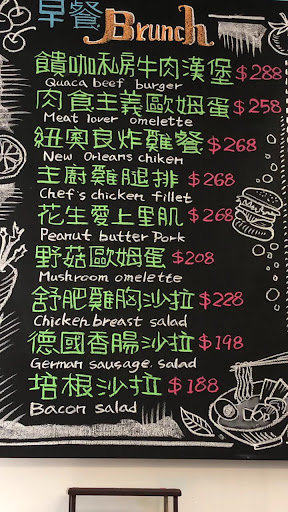 早餐 Brunch
饋咖私房牛肉漢堡 $288
Quaca beef burger
肉食主義歐姆蛋 $258
Meat lover omelette
紐奧良炸雞餐 $268
New Orleans chiken
主廚雞腿排 $268
Chef's chicken fillet
花生愛上里肌 $268
Peanut butter Pork
野菇歐姆蛋 $208
Mushroom omelette
舒肥雞胸沙拉 $228
Chicken breast salad
德國香腸沙拉 $198
German sausage salad
培根沙拉 $188
Bacon salad